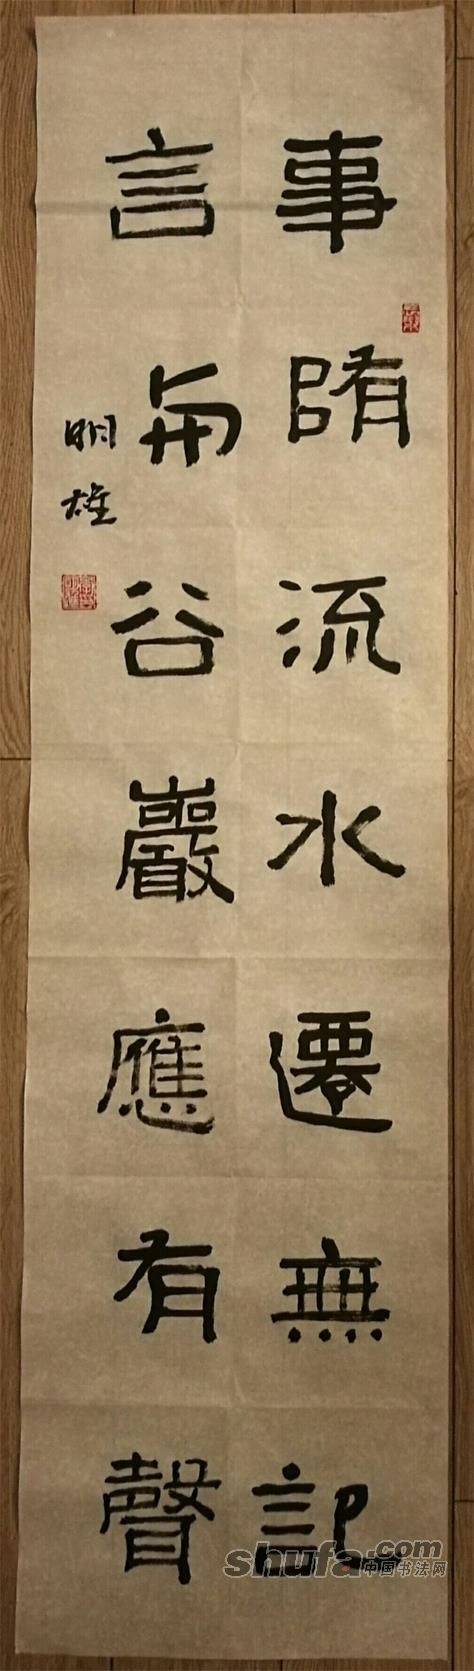 事陏流水遷無記
言谷巖應有聲
明雄
shufa.com
中国书法网